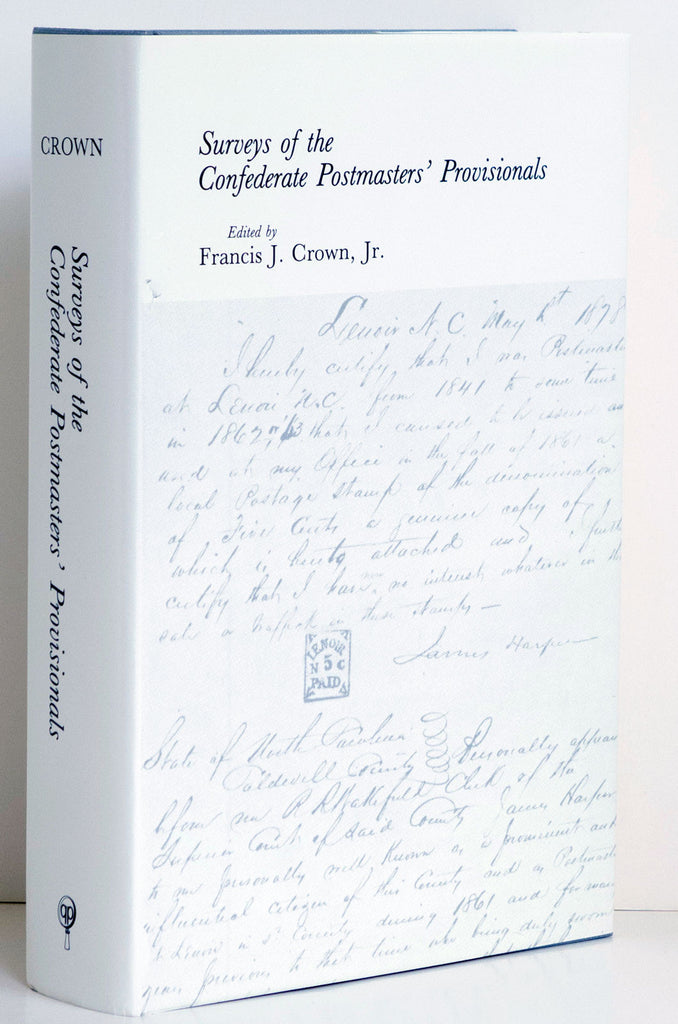 CROWN
Surveys of the
Confederate Postmasters' Provisionals
Surveys of the
Confederate Postmasters' Provisionals
Edited by
Francis J. Crown, Jr.
Lenoir N.C. May 1878
I hereby certify that I was Postmaster
at Lenoir N.C. from 1841 to some time
in 1862 or 63 that I caused to be issued
and at my Office in the fall of 1861 a
local Postage Stamp of the denomination
of Five Cents a genuine copy of
which is hereto attached and I further
certify that I have no interest whatever in the
sale or traffick in these stamps—
James Harper
LENOIR
N 5 C
PAID
State of North Carolina
Caldwell County Personally appeared
before me R R Wakefield Clerk of the
Superior Court of said County James Harper
to me personally well known as a prominent and
influential citizen of this County and as Postmaster
Lenoir in County during 1861 and for many
years previous to that time who being duly sworn